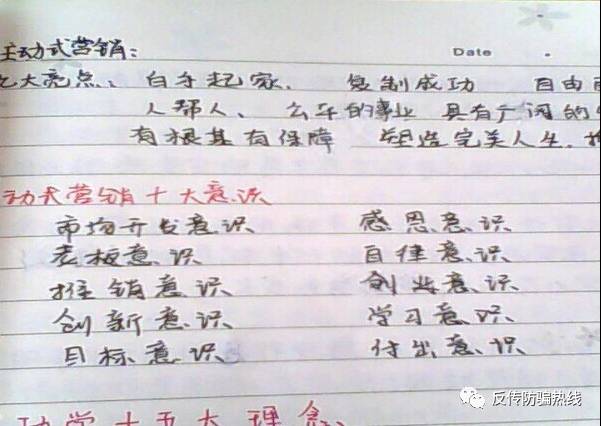 主动式营销:
Date
大亮点、白手起家、 复制成功 自由
人帮人、 公平的事业 具有广阔的
有根基有保障 塑造完美人生、
动式营销十大意识
市场开发意识 感恩意识
老板意识 自律意识
推销意识 创业意识
创新意识 学习意识
目标意识 付出意识
功学十五大理念、
反传防骗热线